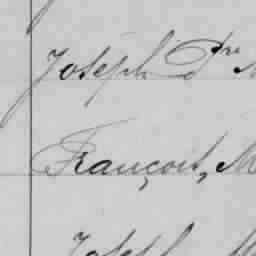 Joseph Pre
François, M
Joseph M